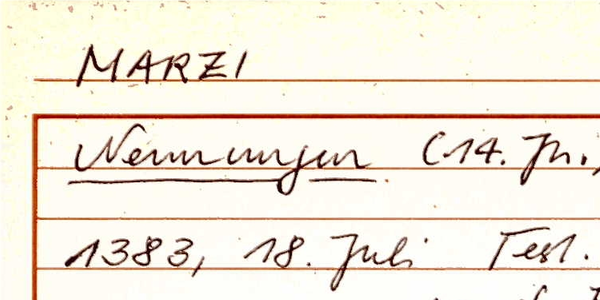 MARZI
Nennungen (14. Jh.,
1383, 18. Juli Test.